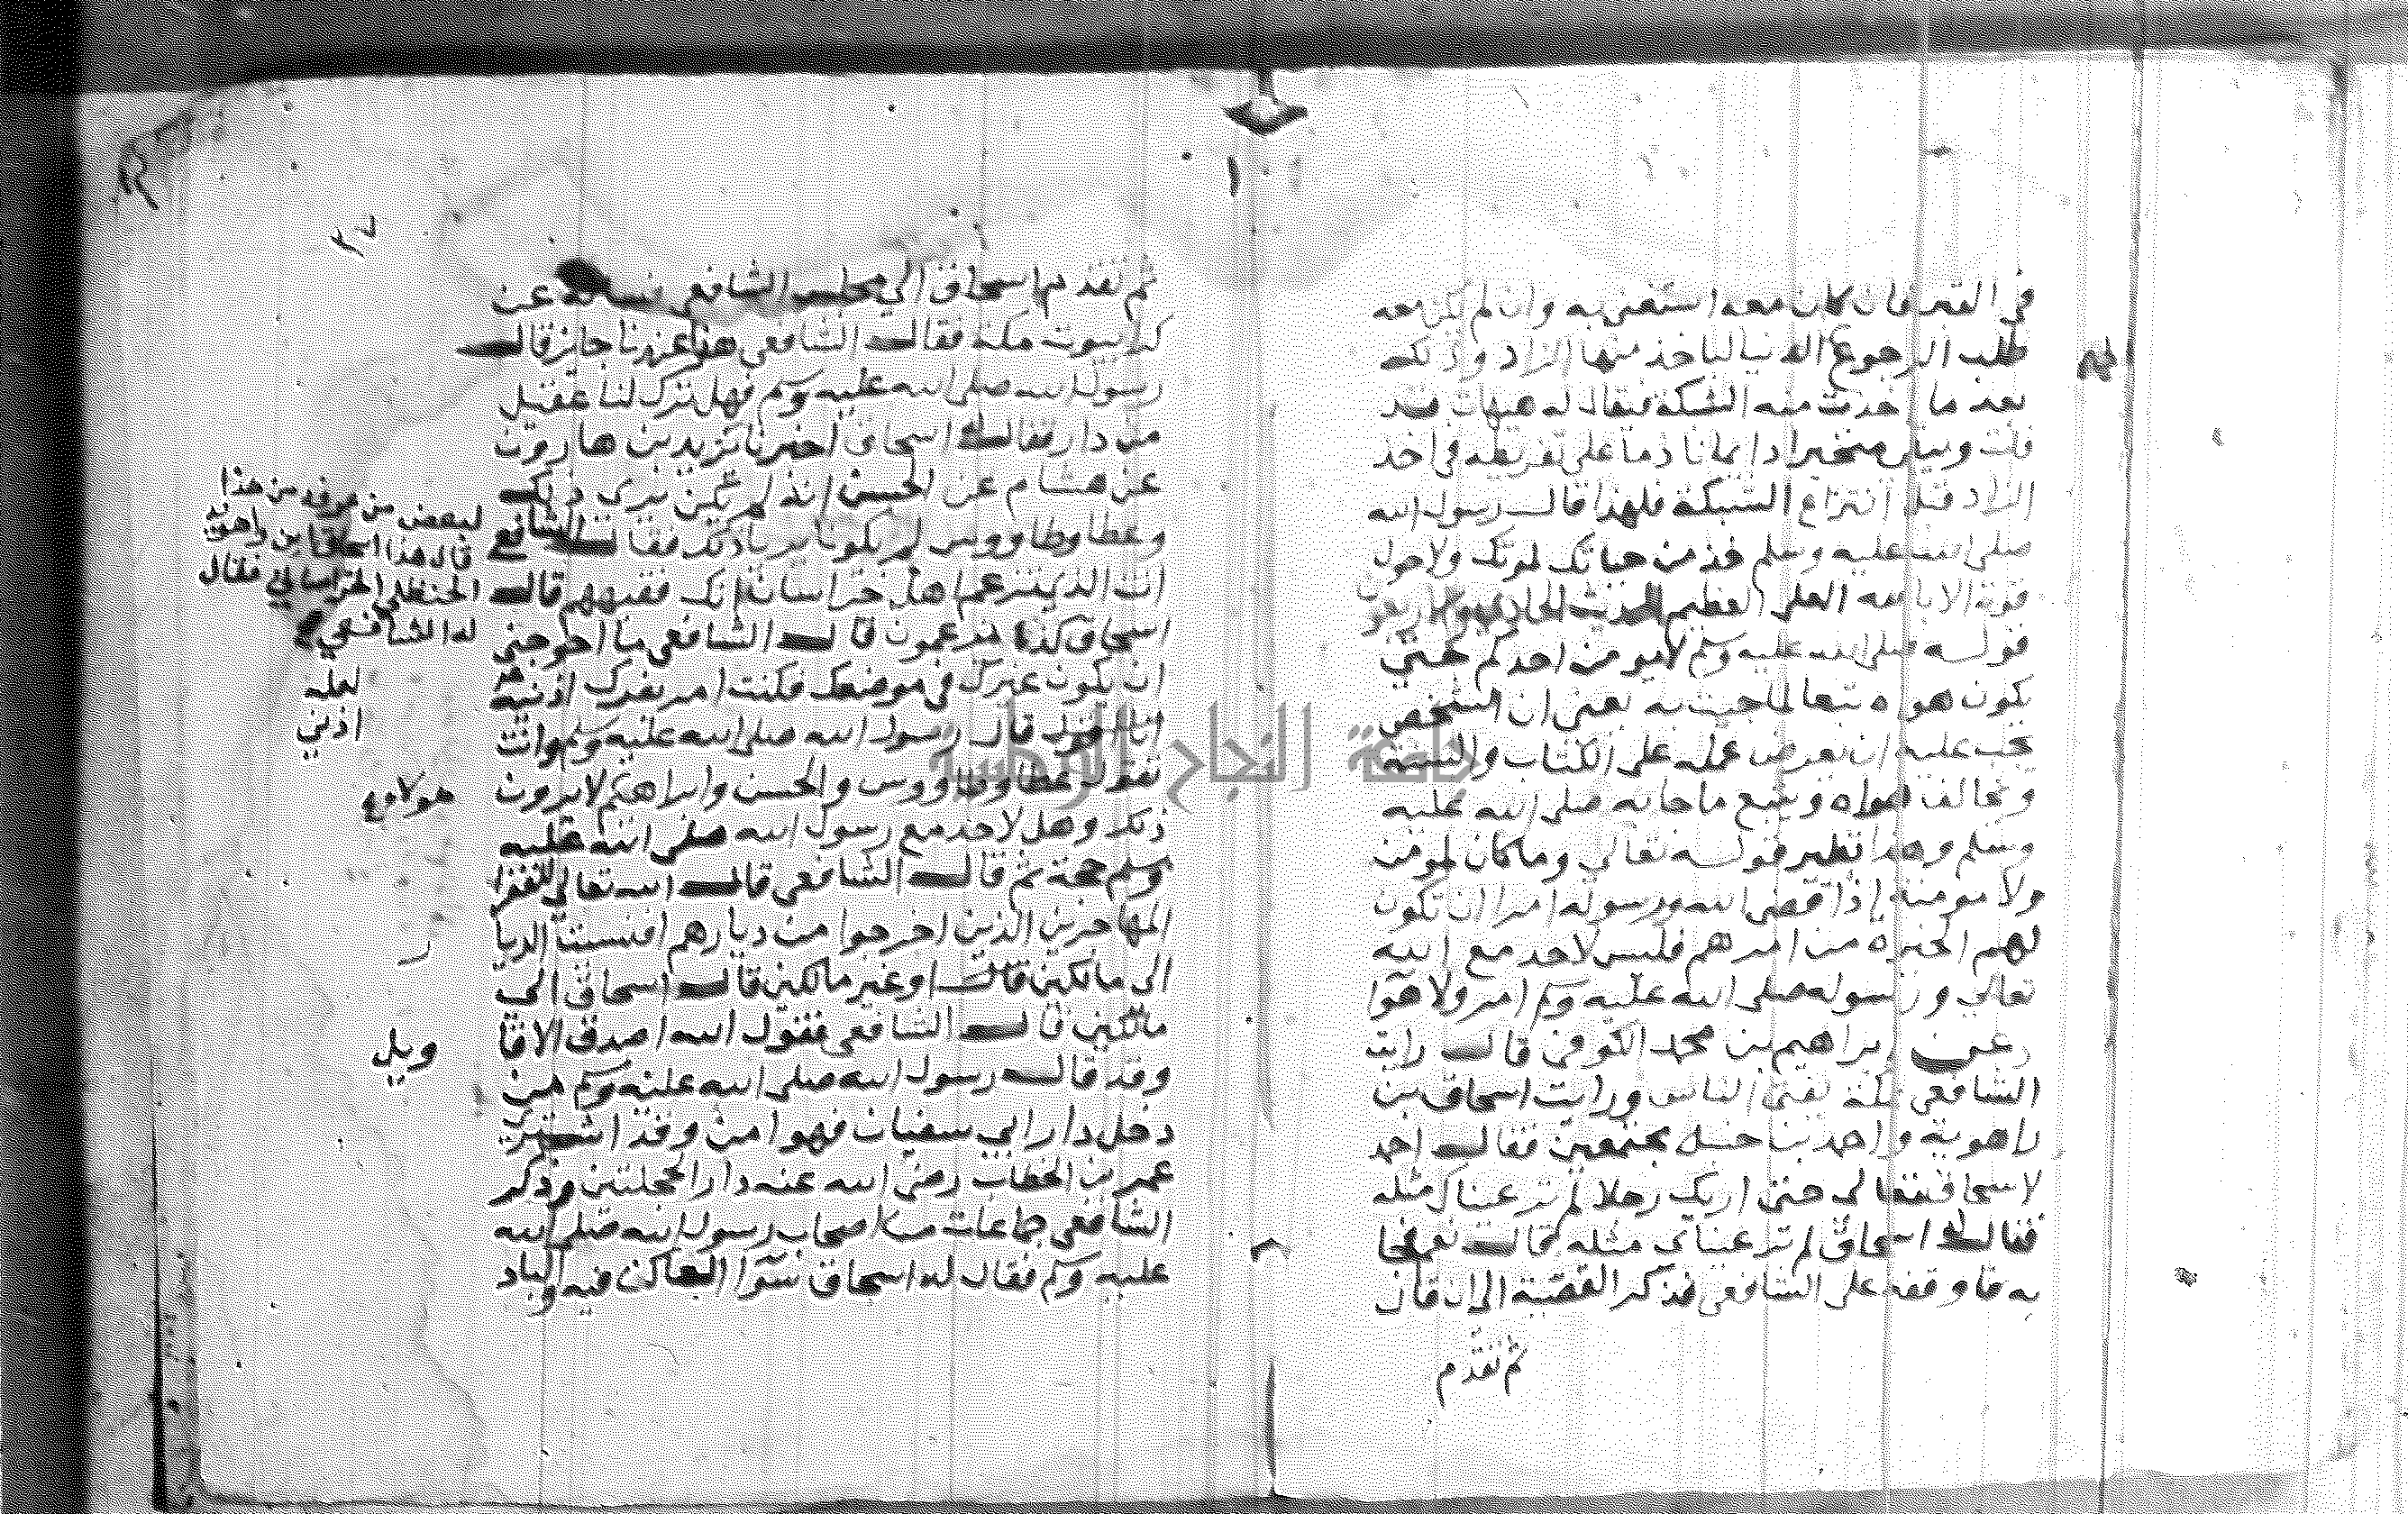 في القبر فان كان معه استغنى به وان لم يكن معه
طلب الرجوع الى الدنيا لياخذ منها الزاد وذلك
بعد ما اخذت منه الشبكة فيقال له هيهات قد
فات وبيقى متحيرا دايما نادما على تفريطه في اخذ
الزاد قبل انتزاع الشبكة فلهذا قال رسول الله
صلى الله عليه وسلم خذ من حياتك لموتك ولاحول
قوة الا بالله العلي العظيم الحديث الحادي والاربعون
قوله صلى الله عليه وسلم لايومن احدكم حتى
يكون هواه تبعا لما جيت به يعنى ان الشخص
يجب عليه ان يعرض عمله على الكتاب والسنة
ويخالف هواه ويتبع ما جا به صلى الله عليه
وسلم وهذا نظير قوله تعالي وما كان لمومن
ولا مومنة اذا قضى الله ورسوله امرا ان تكون
لهم الخيرة من امرهم فليس لاحد مع الله
تعالي ورسوله صلى الله عليه وسلم امر ولا هوا
وعن ابراهيم بن محمد الكوفي قال رايت
الشافعي بمكة يفتى الناس ورايت اسحاق بن
راهوية واحمد بن حنبل مجتمعين فقال احمد
لاسحاق تعالى حتى اريك رجلا لم تر عيناك مثله
فقال اسحاق لم تر عيناي مثله قال نعم فجا
به فاوقفه على الشافعي فذكر القصة الى ان قال
ثم تقدم
٢٧
ثم تقدم اسحاق الي مجلس الشافعي فساله عن
كرا بيوت مكة فقال الشافعي هذا عندنا جايز قال
رسول الله صلى الله عليه وسلم فهل ترك لنا عقيل
من دار فقال اسحاق اخبرنا يزيد بن هارون
عن هشام عن الحسن انه لم يكن يرى ذلك
وعطا وطاووس لم يكونا يريا ذلك فقال الشافعي
انت الذي تزعم اهل خراسان انك فقيههم قال
اسحاق كذا يزعمون قال الشافعي ما احوجني
ان يكون غيرك في موضعك فكنت امر بفرك اذنيه
انا اقول قال رسول الله صلى الله عليه وسلم وانت
تقول عطا وطاووس والحسن وابراهيم لا يرون
ذلك وهل لاحد مع رسول الله صلى الله عليه
وسلم حجة ثم قال الشافعي قال الله تعالي للفقرا
المهاجرين الذين اخرجوا من ديارهم افنسبت الديار
الى مالكين قال او غير مالكين قال اسحاق الي
مالكين قال الشافعي فقول الله اصدق الاقا
وقد قال رسول الله صلى الله عليه وسلم من
دخل دار ابي سفيان فهو امن وقد اشترى
عمر بن الخطاب رضى الله عنه دار الحجلتين وذكر
الشافعي جماعات من اصحاب رسول الله صلى الله
عليه وسلم فقال له اسحاق سوا العاكف فيه والباد
لبعض من عرفه من هذا
قال هذا اسحاق ابن راهويه
الحنظلي الخراساني فقال
له الشافعي
لعله
اذني
هولا مع
ر
ويل